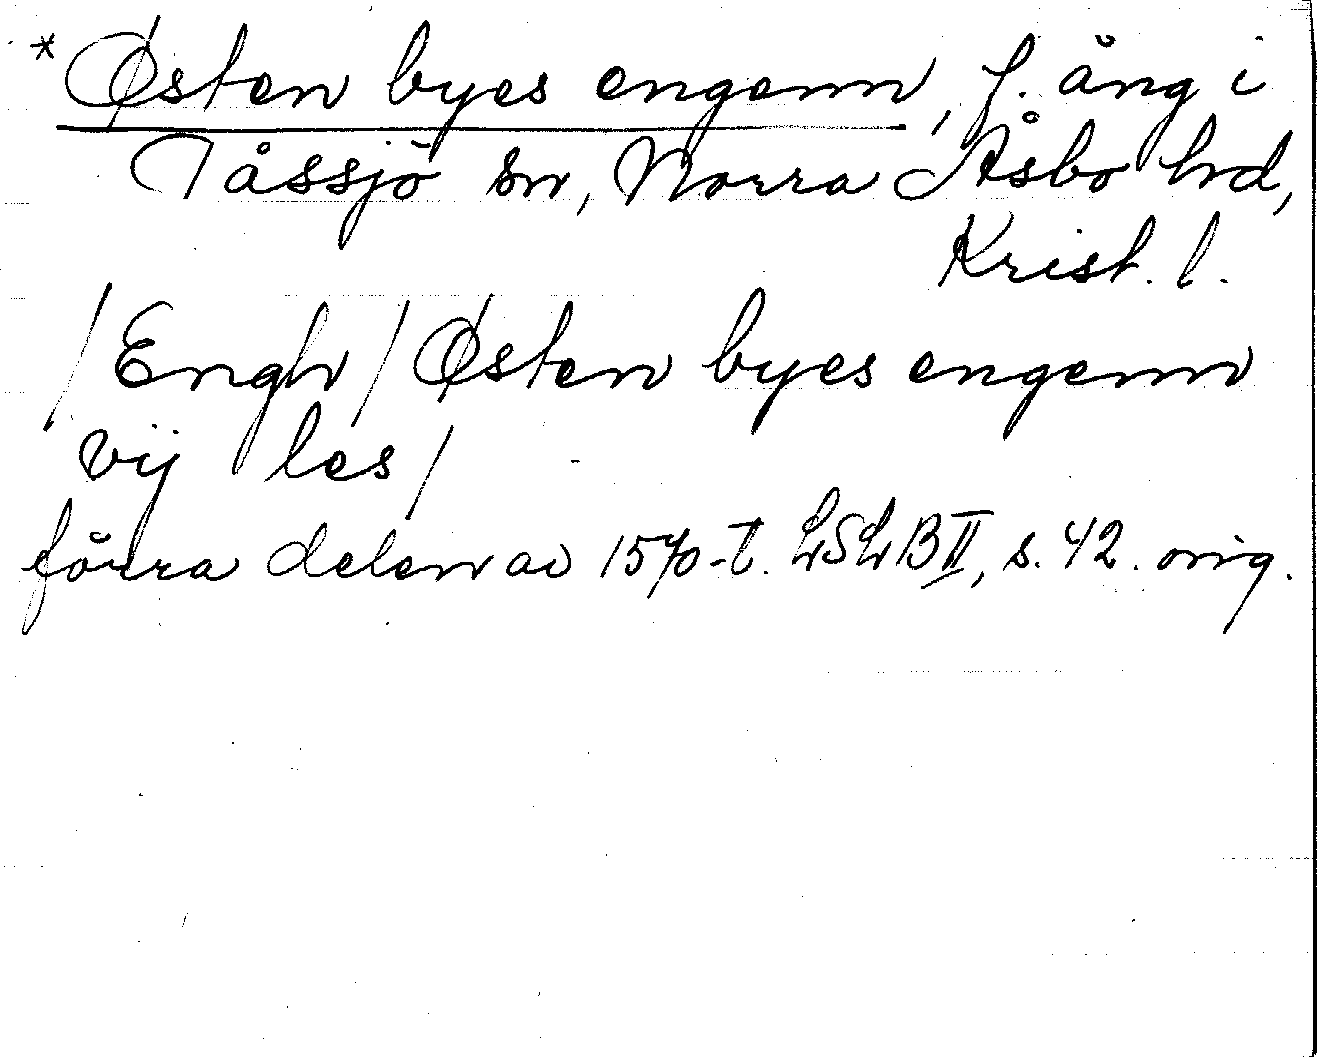 *Østen byes engenn, f. äng i
Tåssjö sn, Norra Åsbo hrd,
Krist. l.
/Engh/ Østen byes engenn
vij les/
förra delen av 1570-t. LSLB II, s. 42. orig.